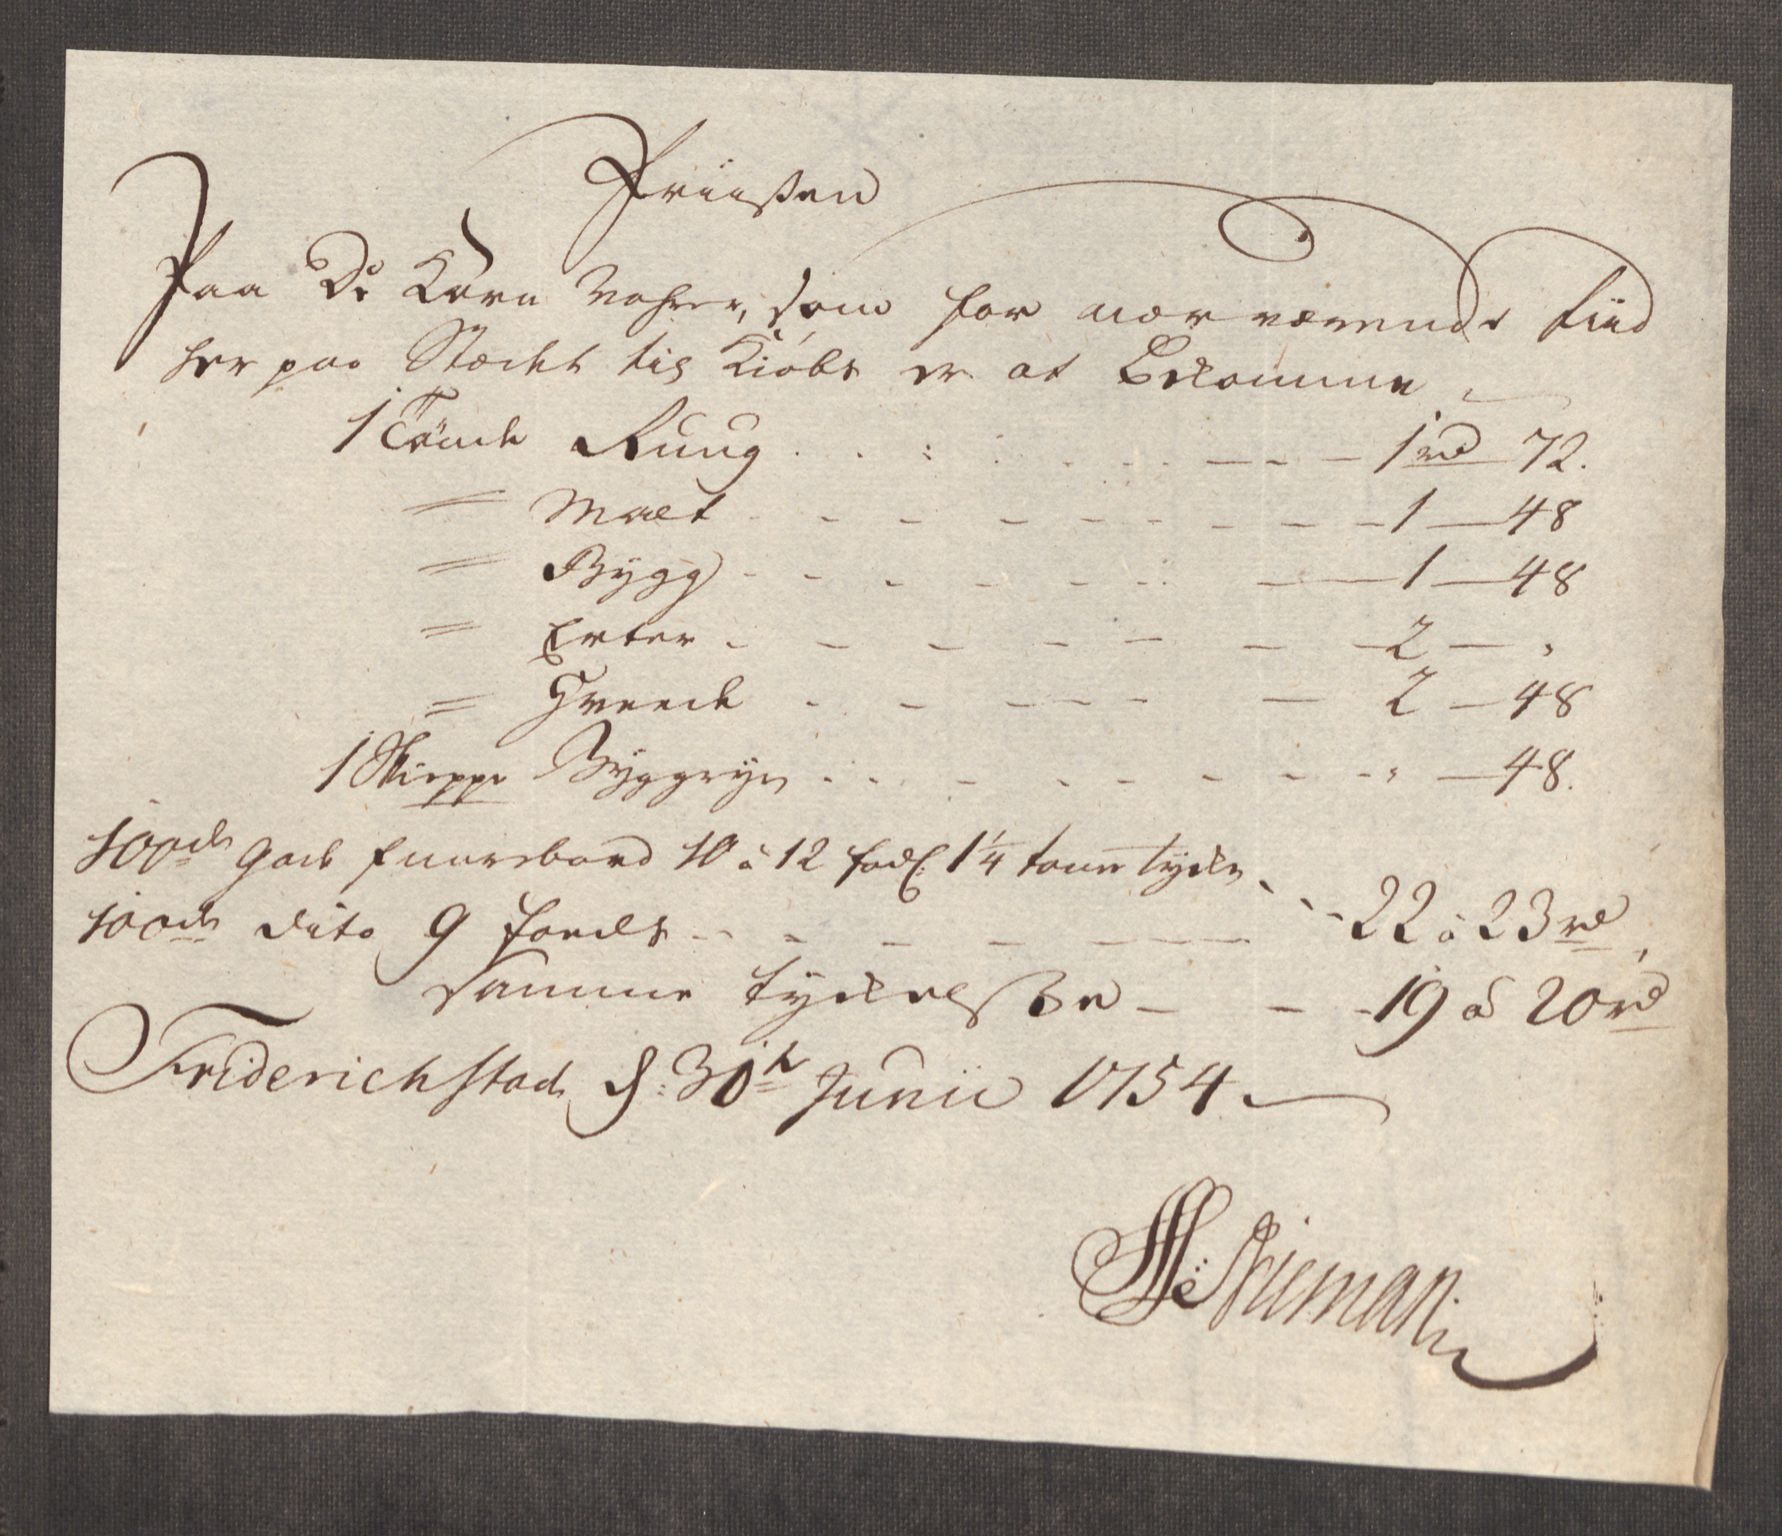 Priisen
Paa De Korn Vahrer, som for nærværende tiid
her paa Stædet til Kiøbs er at Bekomme
1 Tønde Ruug 1 rd 72.
= Malt 1 48
= Bygg 1 48
= Erter 2 "
= Hveede 2 48
1 Skieppe Byggryn " 48.
100de gode fuurebord 10 à 12 fods 1 1/4 tome tyke
22 à 23 rd
100de dito 9 foeds
samme tykelsse 19 à 20 rd
Friderichstad d: 30te Junii 1754
Nieman